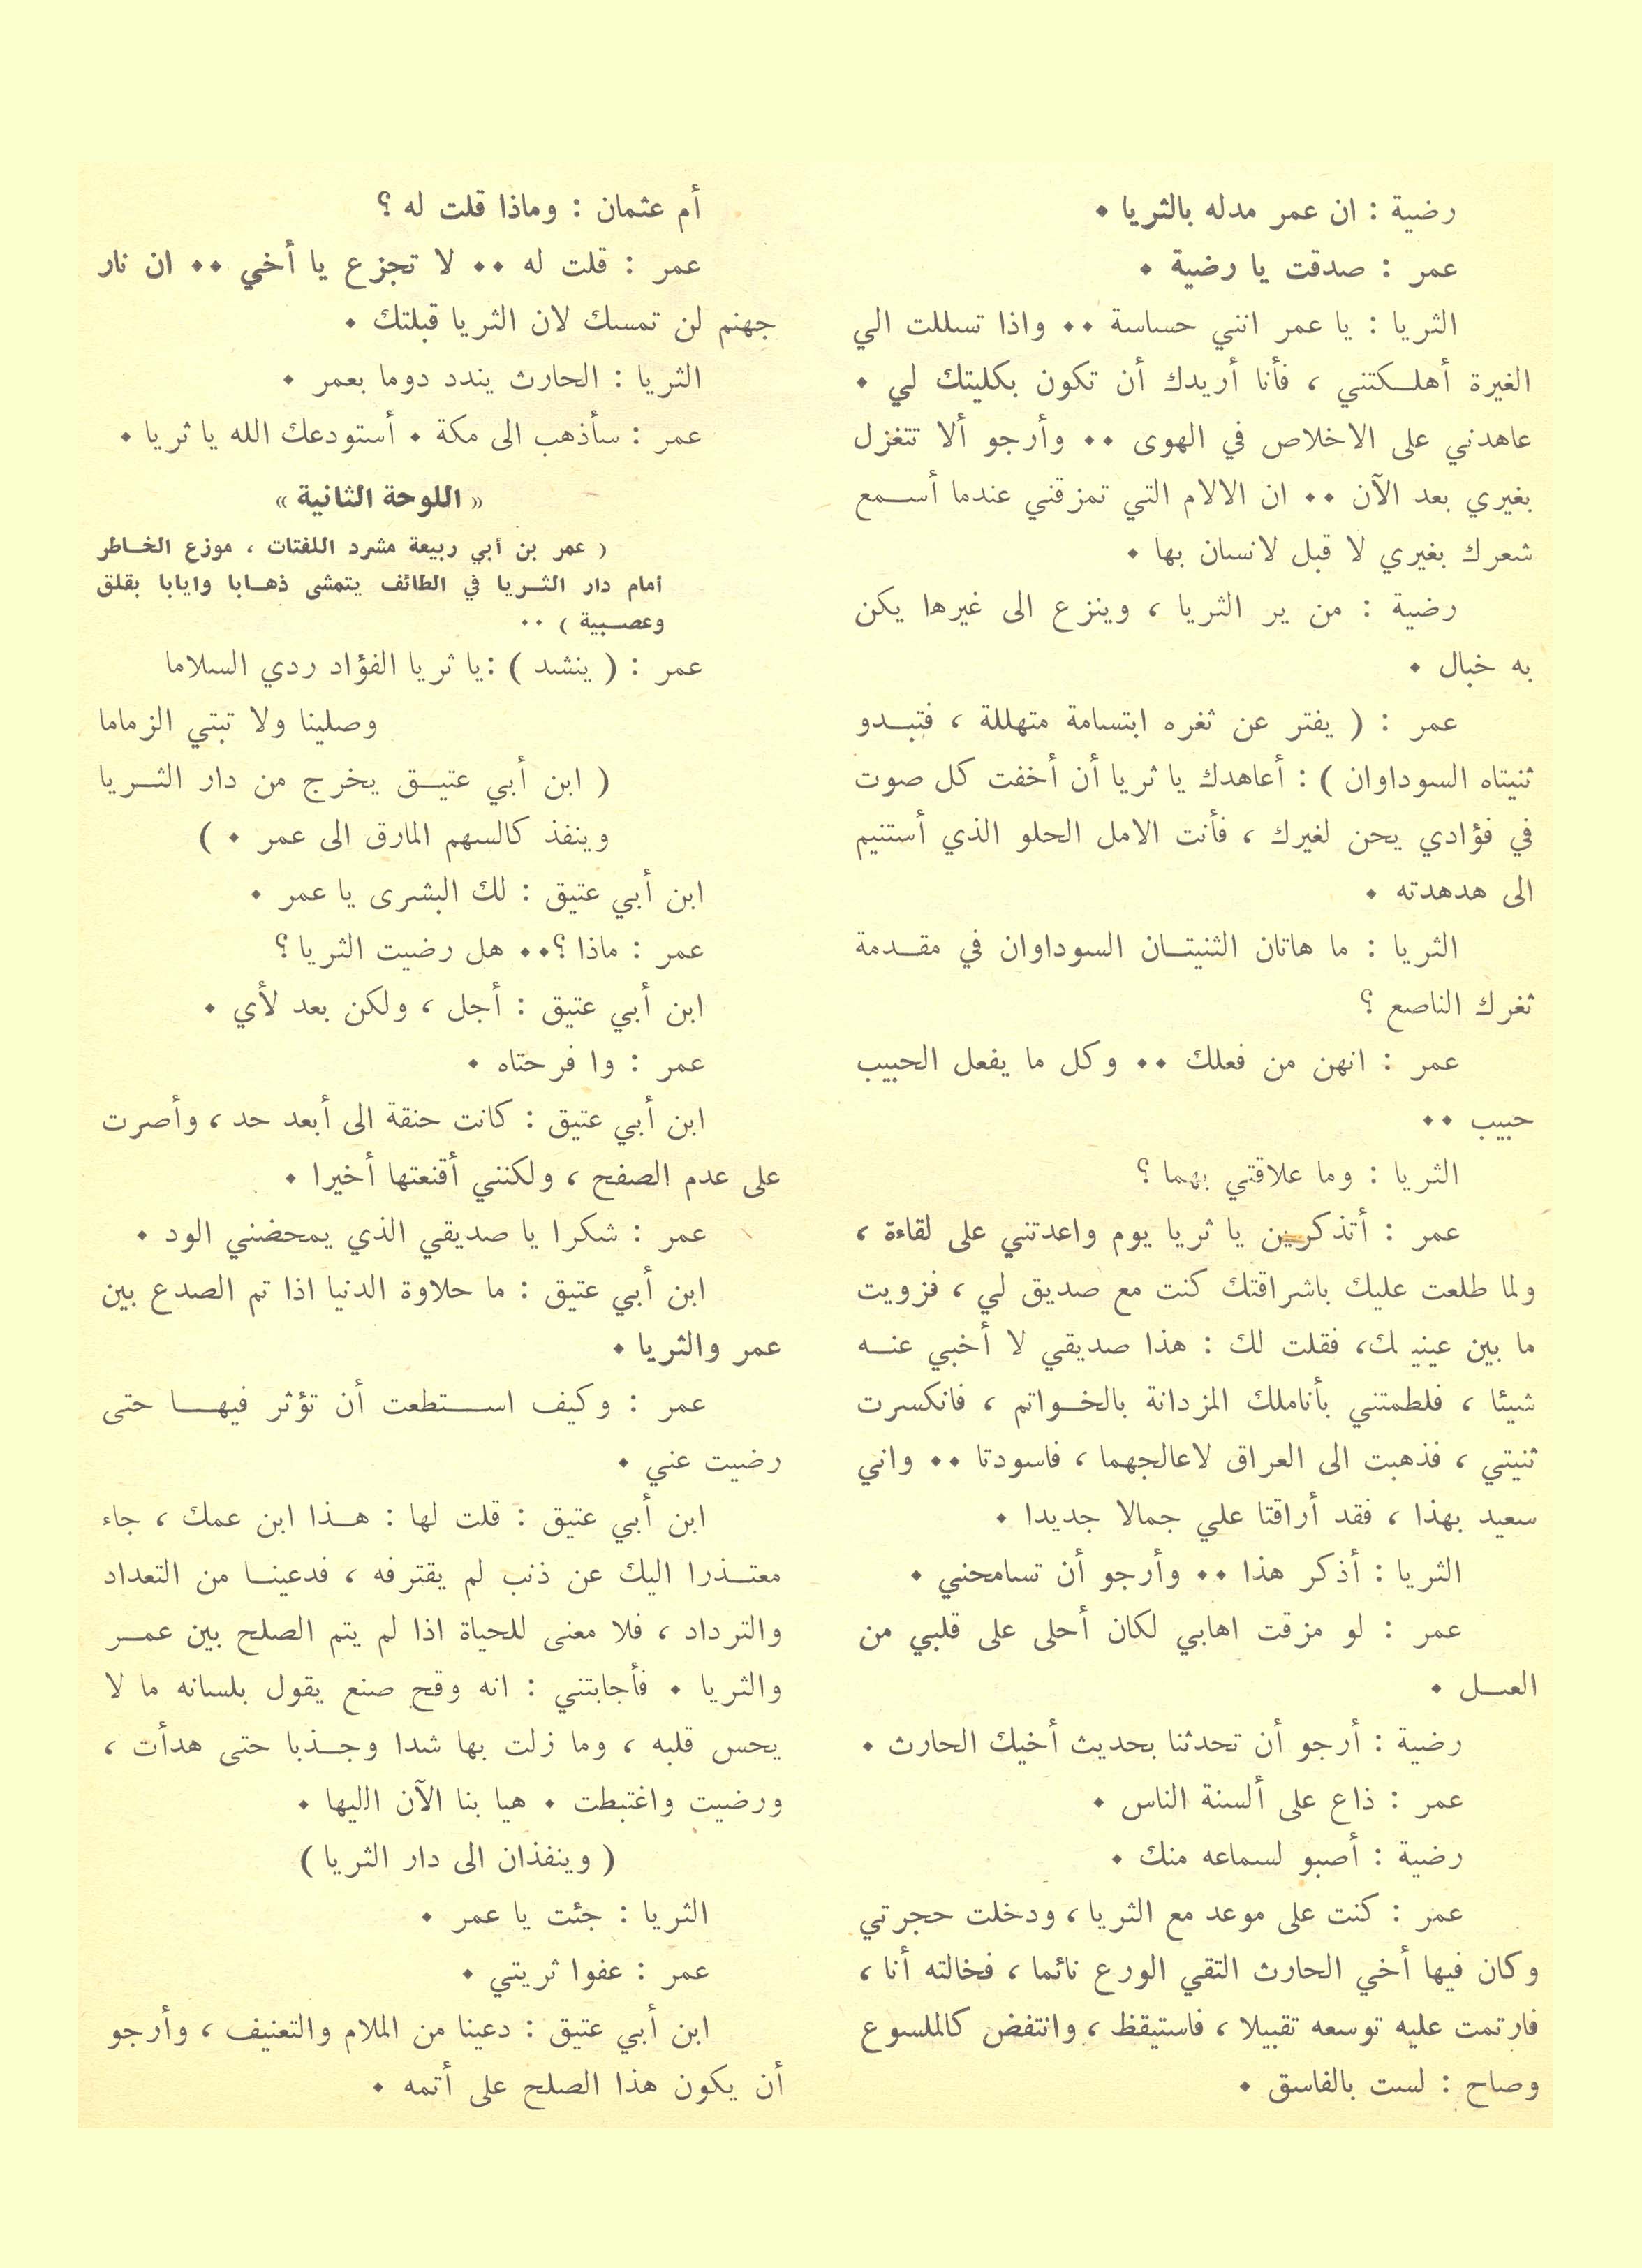 رضية : ان عمر مدله بالثريا .
عمر : صدقت يا رضية .
الثريا : يا عمر انني حساسة .. واذا تسللت الي
الغيرة أهلكتني ، فأنا أريدك أن تكون بكليتك لي .
عاهدني على الاخلاص في الهوى .. وأرجو ألا تتغزل
بغيري بعد الآن .. ان الالام التي تمزقني عندما أسمع
شعرك بغيري لا قبل لانسان بها .
رضية : من ير الثريا ، وينزع الى غيرها يكن
به خبال .
عمر : ( يفتر عن ثغره ابتسامة متهللة ، فتبدو
ثنيتاه السوداوان ) : أعاهدك يا ثريا أن أخفت كل صوت
في فؤادي يحن لغيرك ، فأنت الامل الحلو الذي أستنيم
الى هدهدته .
الثريا : ما هاتان الثنيتان السوداوان في مقدمة
ثغرك الناصع ؟
عمر : انهن من فعلك .. وكل ما يفعل الحبيب
حبيب ..
الثريا : وما علاقتي بهما ؟
عمر : أتذكرين يا ثريا يوم واعدتني على لقاءة ،
ولما طلعت عليك باشراقتك كنت مع صديق لي ، فزويت
ما بين عينيك، فقلت لك : هذا صديقي لا أخبي عنه
شيئا ، فلطمتني بأناملك المزدانة بالخواتم ، فانكسرت
ثنيتي ، فذهبت الى العراق لاعالجهما ، فاسودتا .. واني
سعيد بهذا ، فقد أراقتا علي جمالا جديدا .
الثريا : أذكر هذا .. وأرجو أن تسامحني .
عمر : لو مزقت اهابي لكان أحلى على قلبي من
العسل .
رضية : أرجو أن تحدثنا بحديث أخيك الحارث .
عمر : ذاع على ألسنة الناس .
رضية : أصبو لسماعه منك .
عمر : كنت على موعد مع الثريا ، ودخلت حجرتي
وكان فيها أخي الحارث التقي الورع نائما ، فخالته أنا ،
فارتمت عليه توسعه تقبيلا ، فاستيقظ ، وانتفض كالملسوع
وصاح : لست بالفاسق .
أم عثمان : وماذا قلت له ؟
عمر : قلت له .. لا تجزع يا أخي .. ان نار
جهنم لن تمسك لان الثريا قبلتك .
الثريا : الحارث يندد دوما بعمر .
عمر : سأذهب الى مكة . أستودعك الله يا ثريا .
« اللوحة الثانية »
( عمر بن أبي ربيعة مشرد اللفتات ، موزع الخاطر
أمام دار الثريا في الطائف يتمشى ذهابا وايابا بقلق
وعصبية ) ..
عمر : ( ينشد ) : يا ثريا الفؤاد ردي السلاما
وصلينا ولا تبتي الزماما
( ابن أبي عتيق يخرج من دار الثريا
وينفذ كالسهم المارق الى عمر . )
ابن أبي عتيق : لك البشرى يا عمر .
عمر : ماذا ؟.. هل رضيت الثريا ؟
ابن أبي عتيق : أجل ، ولكن بعد لأي .
عمر : وا فرحتاه .
ابن أبي عتيق : كانت حنقة الى أبعد حد ، وأصرت
على عدم الصفح ، ولكنني أقنعتها أخيرا .
عمر : شكرا يا صديقي الذي يمحضني الود .
ابن أبي عتيق : ما حلاوة الدنيا اذا تم الصدع بين
عمر والثريا .
عمر : وكيف استطعت أن تؤثر فيها حتى
رضيت عني .
ابن أبي عتيق : قلت لها : هذا ابن عمك ، جاء
معتذرا اليك عن ذنب لم يقترفه ، فدعينا من التعداد
والترداد ، فلا معنى للحياة اذا لم يتم الصلح بين عمر
والثريا . فأجابتني : انه وقح صنع يقول بلسانه ما لا
يحس قلبه ، وما زلت بها شدا وجذبا حتى هدأت ،
ورضيت واغتبطت . هيا بنا الآن اليها .
( وينفذان الى دار الثريا )
الثريا : جئت يا عمر .
عمر : عفوا ثريتي .
ابن أبي عتيق : دعينا من الملام والتعنيف ، وأرجو
أن يكون هذا الصلح على أتمه .